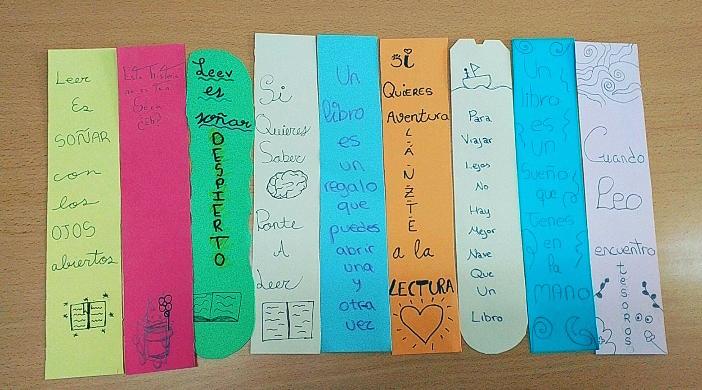 Leer
Es
SOÑAR
con
los
OJOS
abiertos
Esta historia
no es tan
Seca
¿eh?
Leer
es
soñar
DESPIERTO
Si
Quieres
Saber
Ponte
A
Leer
Un
libro
es
un
regalo
que
puedes
abrir
una
y
otra
vez
Si
QUIERES
Aventura
L
Á
N
Z
T
E
a la
LECTURA
Para
Viajar
Lejos
No
Hay
Mejor
Nave
Que
Un
Libro
Un
libro
es
Un
Sueño
que
tienes
en
la
MANO
Cuando
Leo
encuentro
tesoros